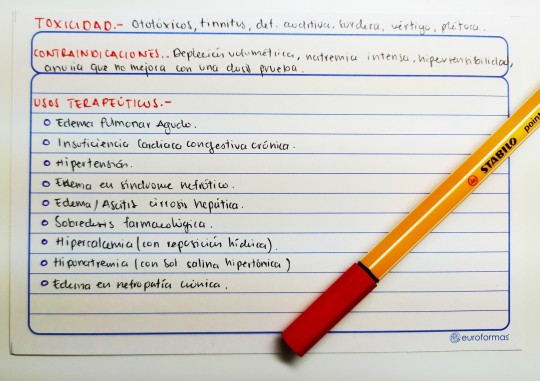 TOXICIDAD.- Ototóxicos, tinnitus, def. auditiva. Sordera, vértigo, plétora.
CONTRAINDICACIONES.. Depleción volumétrica, natremia intensa, hipersensibilidad,
anuria que no mejora con una dosis prueba.
USOS TERAPEÚTICOS.-
Edema Pulmonar Agudo.
Insuficiencia Cardiaca congestiva crónica.
Hipertensión.
Edema en síndrome nefrótico.
Edema/Ascitis cirrosis hepática.
Sobredosis farmacológica.
Hipercalcemia (con reposición hídrica).
Hiponatremia (con sol salina hipertónica)
Edema en nefropatía crónica.
STABILO point
euroformas